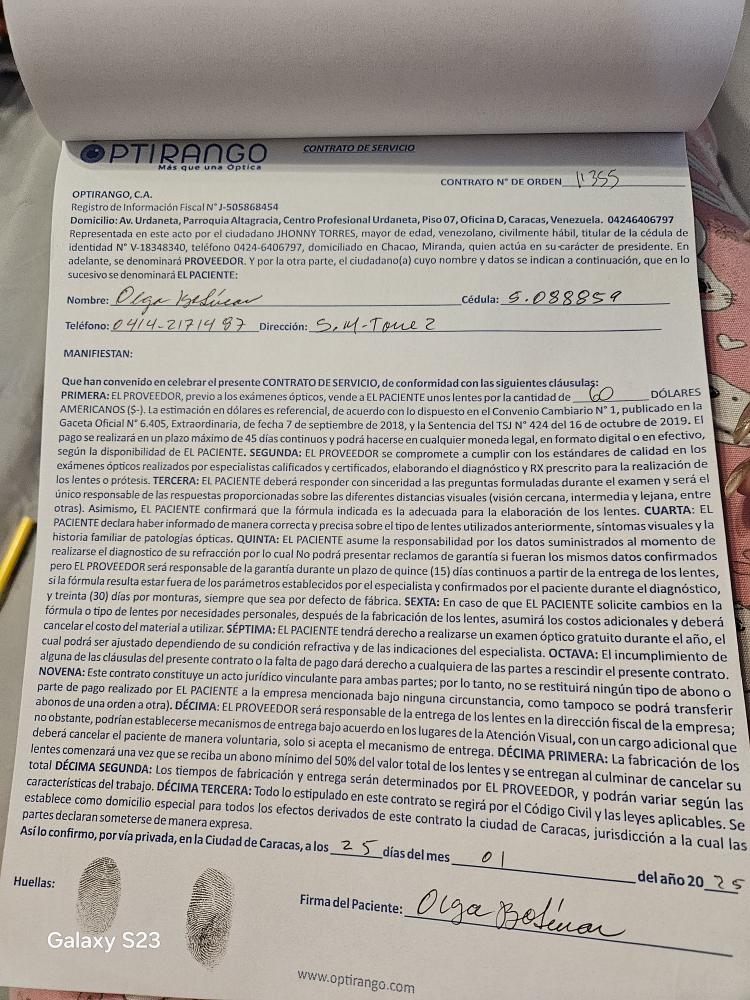 OPTIRANGO
Más que una Óptica
CONTRATO DE SERVICIO
CONTRATO N° DE ORDEN 11355
OPTIRANGO, C.A.
Registro de Información Fiscal N° J-505868454
Domicilio: Av. Urdaneta, Parroquia Altagracia, Centro Profesional Urdaneta, Piso 07, Oficina D, Caracas, Venezuela. 04246406797
Representada en este acto por el ciudadano JHONNY TORRES, mayor de edad, venezolano, civilmente hábil, titular de la cédula de
identidad N° V-18348340, teléfono 0424-6406797, domiciliado en Chacao, Miranda, quien actúa en su carácter de presidente. En
adelante, se denominará PROVEEDOR. Y por la otra parte, el ciudadano(a) cuyo nombre y datos se indican a continuación, que en lo
sucesivo se denominará EL PACIENTE:
Nombre: Olga Cédula: 5.088859
Teléfono: 0414-2171487 Dirección: S.M-Torre 2
MANIFIESTAN:
Que han convenido en celebrar el presente CONTRATO DE SERVICIO, de conformidad con las siguientes cláusulas:
PRIMERA: EL PROVEEDOR, previo a los exámenes ópticos, vende a EL PACIENTE unos lentes por la cantidad de 60 DÓLARES
AMERICANOS ($-). La estimación en dólares es referencial, de acuerdo con lo dispuesto en el Convenio Cambiario N° 1, publicado en la
Gaceta Oficial N° 6.405, Extraordinaria, de fecha 7 de septiembre de 2018, y la Sentencia del TSJ N° 424 del 16 de octubre de 2019. El
pago se realizará en un plazo máximo de 45 días continuos y podrá hacerse en cualquier moneda legal, en formato digital o en efectivo,
según la disponibilidad de EL PACIENTE. SEGUNDA: EL PROVEEDOR se compromete a cumplir con los estándares de calidad en los
exámenes ópticos realizados por especialistas calificados y certificados, elaborando el diagnóstico y RX prescrito para la realización de
los lentes o prótesis. TERCERA: EL PACIENTE deberá responder con sinceridad a las preguntas formuladas durante el examen y será el
único responsable de las respuestas proporcionadas sobre las diferentes distancias visuales (visión cercana, intermedia y lejana, entre
otras). Asimismo, EL PACIENTE confirmará que la fórmula indicada es la adecuada para la elaboración de los lentes. CUARTA: EL
PACIENTE declara haber informado de manera correcta y precisa sobre el tipo de lentes utilizados anteriormente, síntomas visuales y la
historia familiar de patologías ópticas. QUINTA: EL PACIENTE asume la responsabilidad por los datos suministrados al momento de
realizarse el diagnostico de su refracción por lo cual No podrá presentar reclamos de garantía si fueran los mismos datos confirmados
pero EL PROVEEDOR será responsable de la garantía durante un plazo de quince (15) días continuos a partir de la entrega de los lentes,
si la fórmula resulta estar fuera de los parámetros establecidos por el especialista y confirmados por el paciente durante el diagnóstico,
y treinta (30) días por monturas, siempre que sea por defecto de fábrica. SEXTA: En caso de que EL PACIENTE solicite cambios en la
fórmula o tipo de lentes por necesidades personales, después de la fabricación de los lentes, asumirá los costos adicionales y deberá
cancelar el costo del material a utilizar. SÉPTIMA: EL PACIENTE tendrá derecho a realizarse un examen óptico gratuito durante el año, el
cual podrá ser ajustado dependiendo de su condición refractiva y de las indicaciones del especialista. OCTAVA: El incumplimiento de
alguna de las cláusulas del presente contrato o la falta de pago dará derecho a cualquiera de las partes a rescindir el presente contrato.
NOVENA: Este contrato constituye un acto jurídico vinculante para ambas partes; por lo tanto, no se restituirá ningún tipo de abono o
parte de pago realizado por EL PACIENTE a la empresa mencionada bajo ninguna circunstancia, como tampoco se podrá transferir
abonos de una orden a otra). DÉCIMA: EL PROVEEDOR será responsable de la entrega de los lentes en la dirección fiscal de la empresa;
no obstante, podrían establecerse mecanismos de entrega bajo acuerdo en los lugares de la Atención Visual, con un cargo adicional que
deberá cancelar el paciente de manera voluntaria, solo si acepta el mecanismo de entrega. DÉCIMA PRIMERA: La fabricación de los
lentes comenzará una vez que se reciba un abono mínimo del 50% del valor total de los lentes y se entregan al culminar de cancelar su
total DÉCIMA SEGUNDA: Los tiempos de fabricación y entrega serán determinados por EL PROVEEDOR, y podrán variar según las
características del trabajo. DÉCIMA TERCERA: Todo lo estipulado en este contrato se regirá por el Código Civil y las leyes aplicables. Se
establece como domicilio especial para todos los efectos derivados de este contrato la ciudad de Caracas, jurisdicción a la cual las
partes declaran someterse de manera expresa.
Así lo confirmo, por vía privada, en la Ciudad de Caracas, a los 25 días del mes 01 del año 2025
Huellas:
Firma del Paciente: Olga
Galaxy S23
www.optirango.com